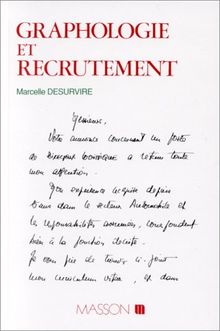 GRAPHOLOGIE
ET
RECRUTEMENT
Marcelle DESURVIRE
Messieurs,
Votre annonce concernant un poste
de Directeur Commercial a retenu toute
mon attention.
Mon expérience acquise depuis
dans le secteur Automobile et
les responsabilités assumées, correspondent
bien à la fonction décrite.
Je vous prie de trouver ci-joint
mon curriculum vitae, et dans
MASSON